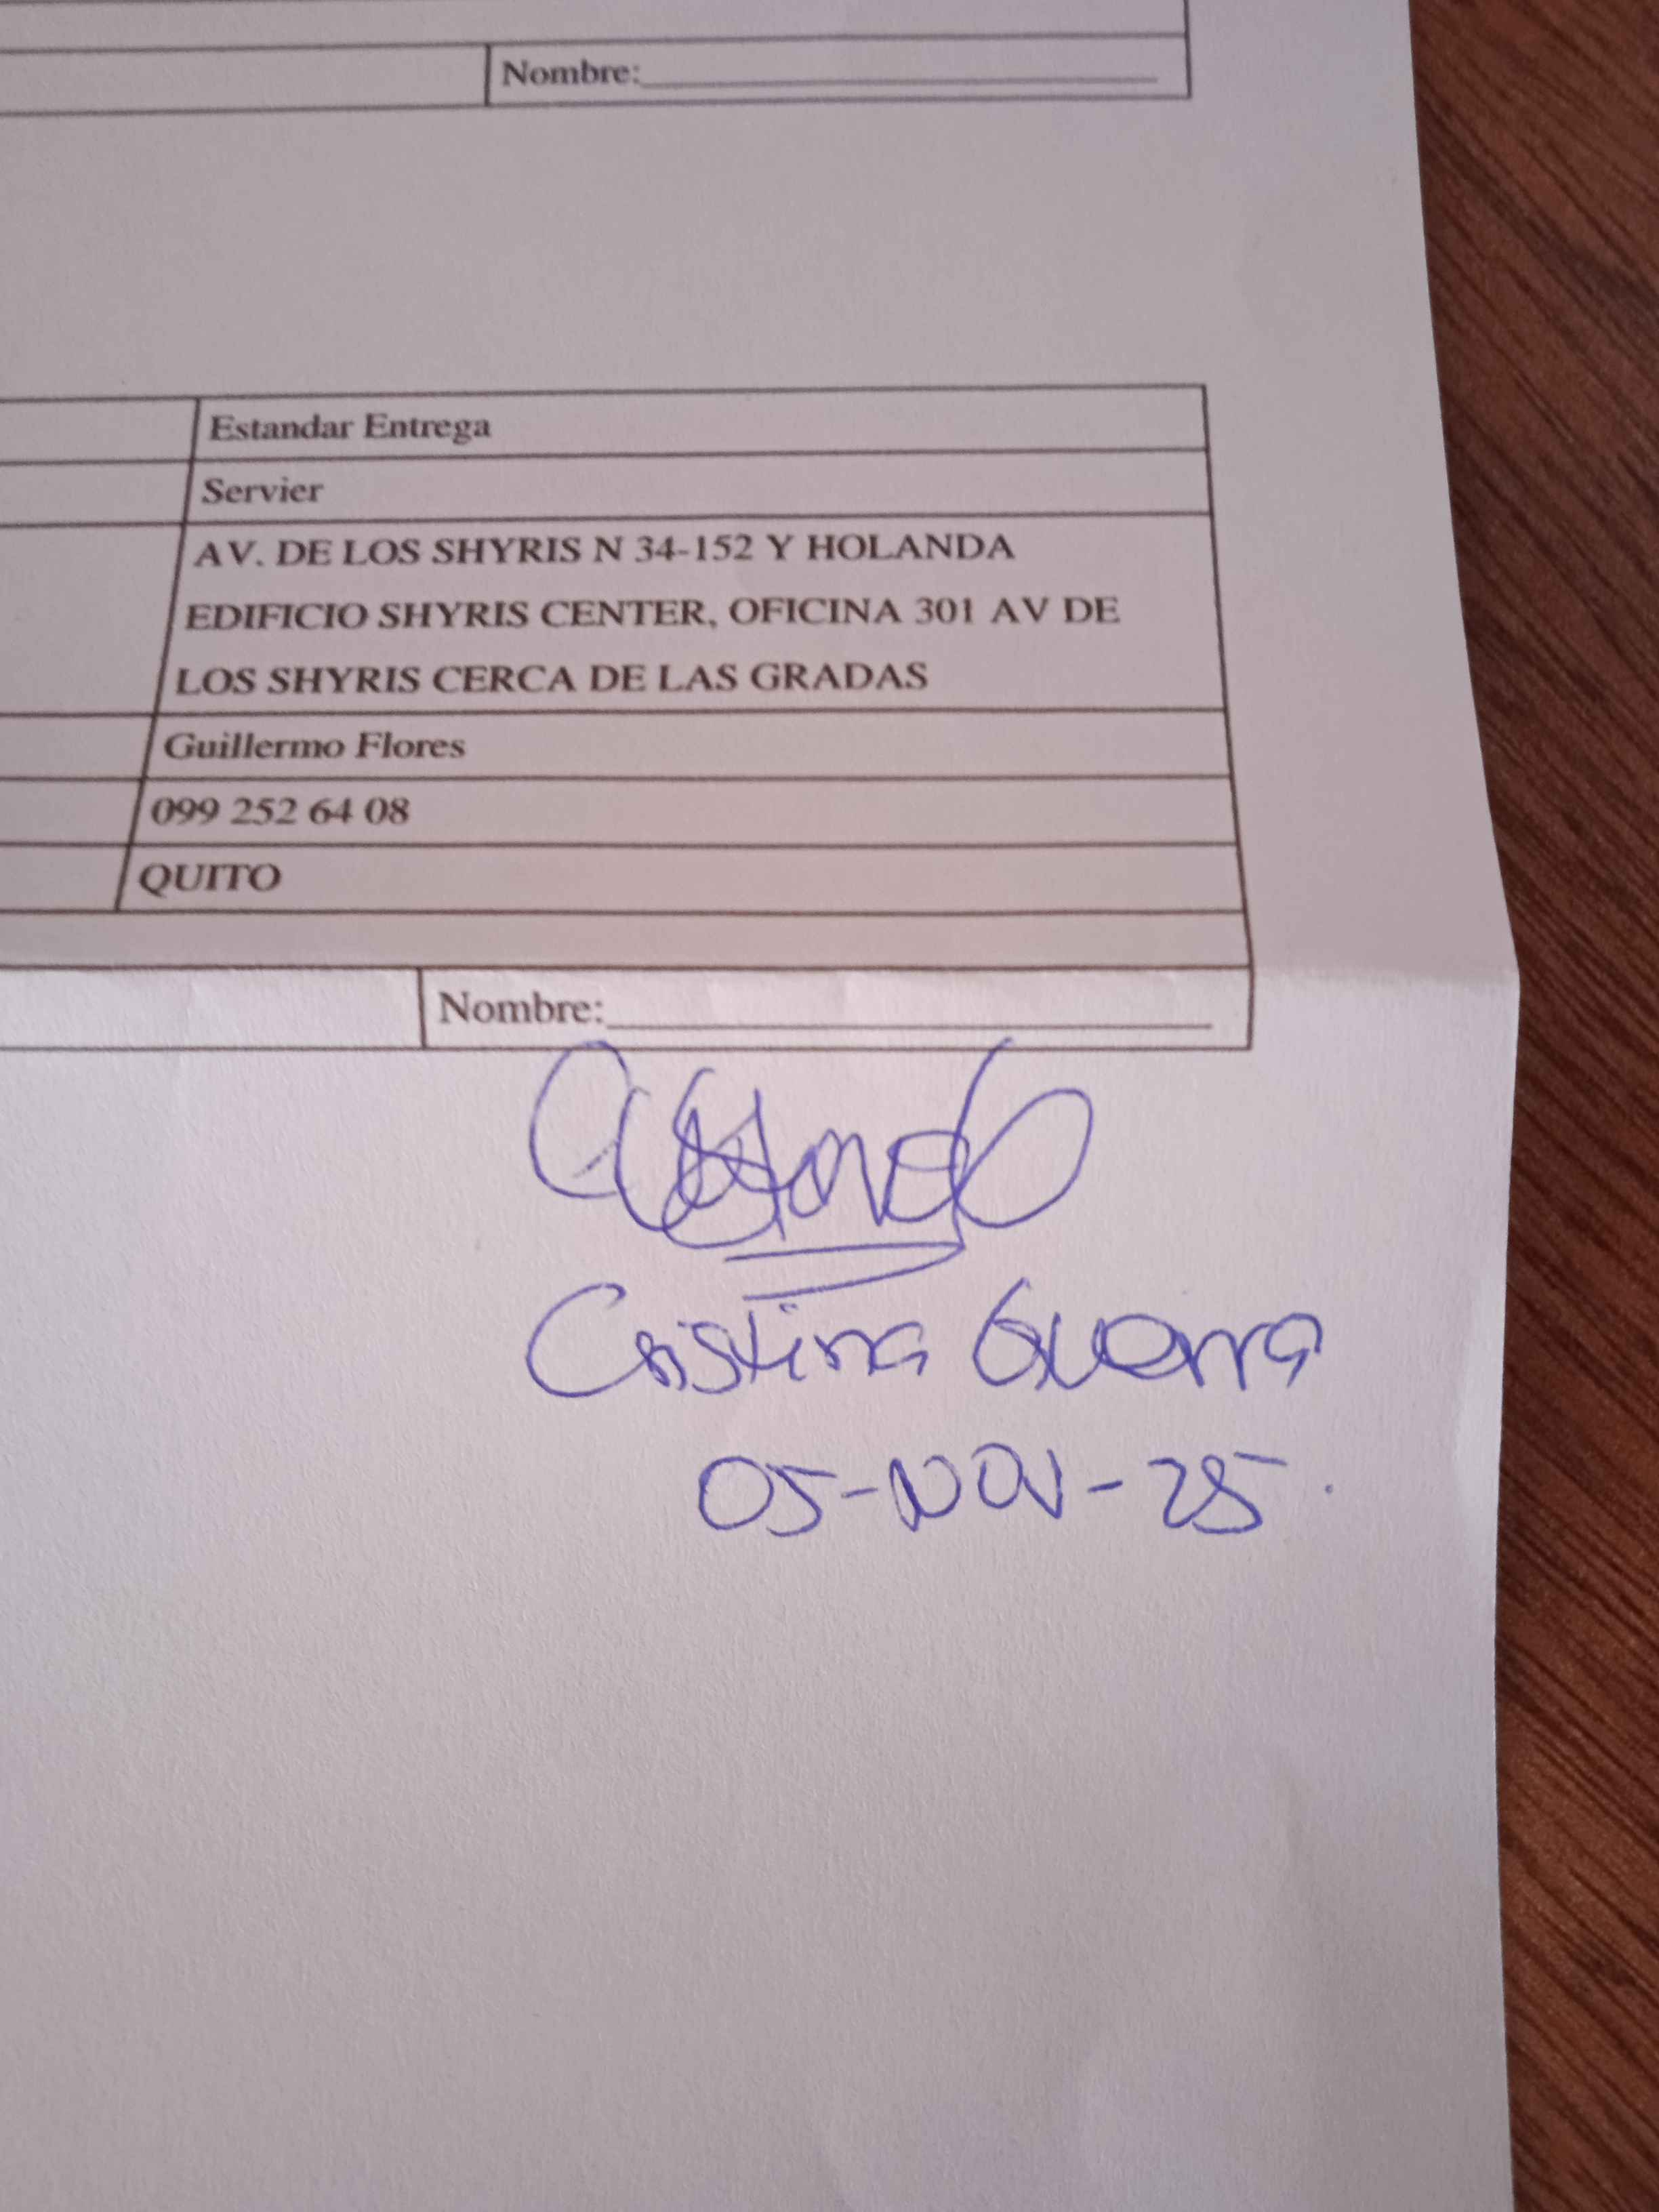 Nombre:
Estandar Entrega
Servier
AV. DE LOS SHYRIS N 34-152 Y HOLANDA
EDIFICIO SHYRIS CENTER, OFICINA 301 AV DE
LOS SHYRIS CERCA DE LAS GRADAS
Guillermo Flores
099 252 64 08
QUITO
Nombre:
Cristina Guerra
05-NOV-25.